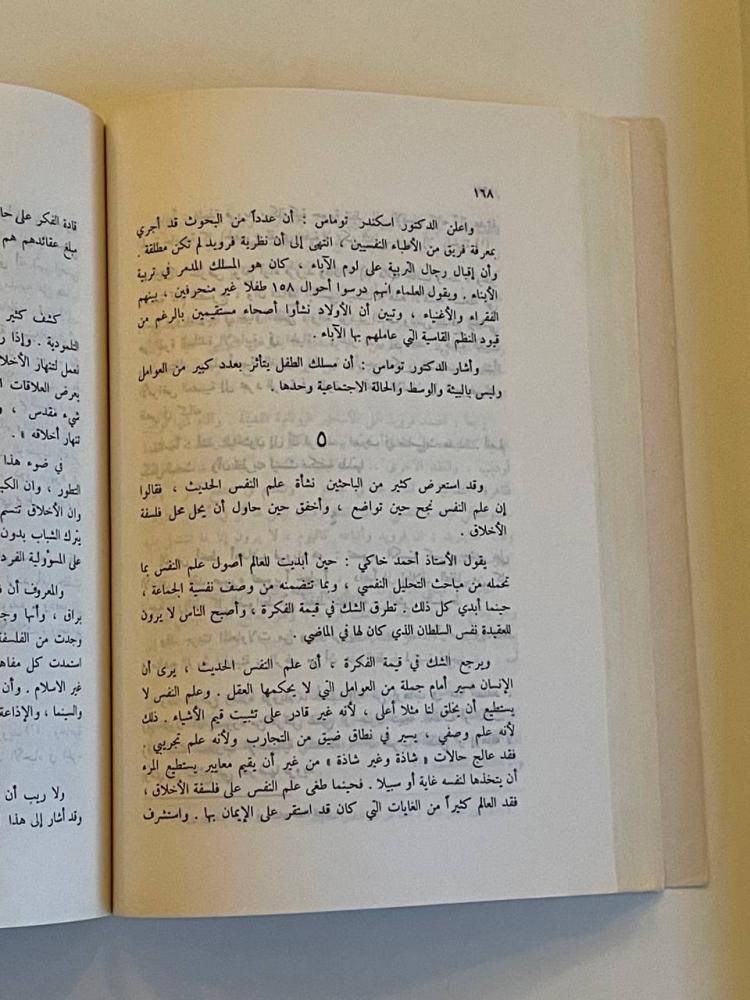 ١٦٨
واعلن الدكتور اسكندر توماس : أن عدداً من البحوث قد أجري
بمعرفة فريق من الأطباء النفسيين ، انتهى إلى أن نظرية فرويد لم تكن مطلقة .
وأن إقبال رجال التربية على لوم الآباء ، كان هو المسلك المدمر في تربية
الأبناء . ويقول العلماء انهم درسوا أحوال ١٥٨ طفلا غير منحرفين ، بينهم
الفقراء والأغنياء ، وتبين أن الأولاد نشأوا أصحاء مستقيمين بالرغم من
قيود النظم القاسية التي عاملهم بها الآباء .
وأشار الدكتور توماس : أن مسلك الطفل يتأثر بعدد كبير من العوامل
وليس بالبيئة والوسط والحالة الاجتماعية وحدها .
٥
وقد استعرض كثير من الباحثين نشأة علم النفس الحديث ، فقالوا
إن علم النفس نجح حين تواضع ، وأخفق حين حاول أن يحل محل فلسفة
الأخلاق .
يقول الأستاذ أحمد خاكي : حين أبديت للعالم أصول علم النفس بما
تحمله من مباحث التحليل النفسي ، وبما تتضمنه من وصف نفسية الجماعة ،
حينما أبدي كل ذلك . تطرق الشك في قيمة الفكرة ، وأصبح الناس لا يرون
للعقيدة نفس السلطان الذي كان لها في الماضي .
ويرجع الشك في قيمة الفكرة ، أن علم النفس الحديث ، يرى أن
الإنسان مسير أمام جملة من العوامل التي لا يحكمها العقل . وعلم النفس لا
يستطيع أن يخلق لنا مثلا أعلى ، لأنه غير قادر على تثبيت قيم الأشياء . ذلك
لأنه علم وصفي ، يسير في نطاق ضيق من التجارب ولأنه علم تجريبي .
فقد عالج حالات « شاذة وغير شاذة » من غير أن يقيم معايير يستطيع المرء
أن يتخذها لنفسه غاية أو سبيلا . فحينما طغى علم النفس على فلسفة الأخلاق ،
فقد العالم كثيراً من الغايات التي كان قد استقر على الإيمان بها . واستشرف
قادة الفكر على
مبلغ عقائدهم هم
كشف كثير
التلمودية . وإذا
نعمل لتنهار
بعرض العلاقات
شيء مقدس ،
تنهار أخلاقه » .
في ضوء هذا
التطور ، وان
وان الأخلاق تتسم
يترك الشباب بدون
على المسؤولية
والمعروف أن
براق ، وأنها
وجدت من
استمدت كل
غير الاسلام . وأن
والسينما ، والإذاعة
ولا ريب أن
وقد أشار إلى هذا